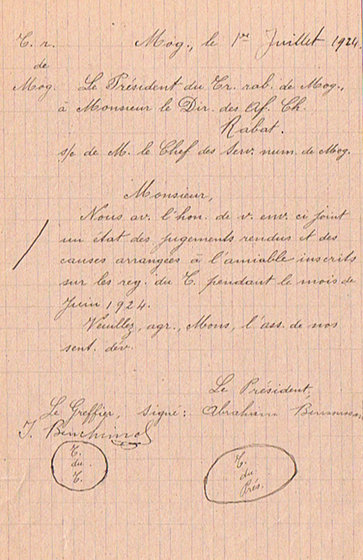 T. r. Mog., le 1er Juillet 1924.
de
Mog. Le Président du Tr. rab. de Mog.,
à Monsieur le Dir. des Af. Ch.
Rabat.
s/c de M. le Chef des Serv. mun. de Mog.
Monsieur,
Nous av. l'hon. de v. env. ci joint
un état des jugements rendus et des
causes arrangées à l'amiable inscrits
sur les reg. du T. pendant le mois de
Juin 1924.
Veuillez, agr., Mons, l'ass. de nos
sent. dev.
Le Président,
Le Greffier, signé: Abraham
I. Benchimol
T.
du
T.
T.
du
Prés.